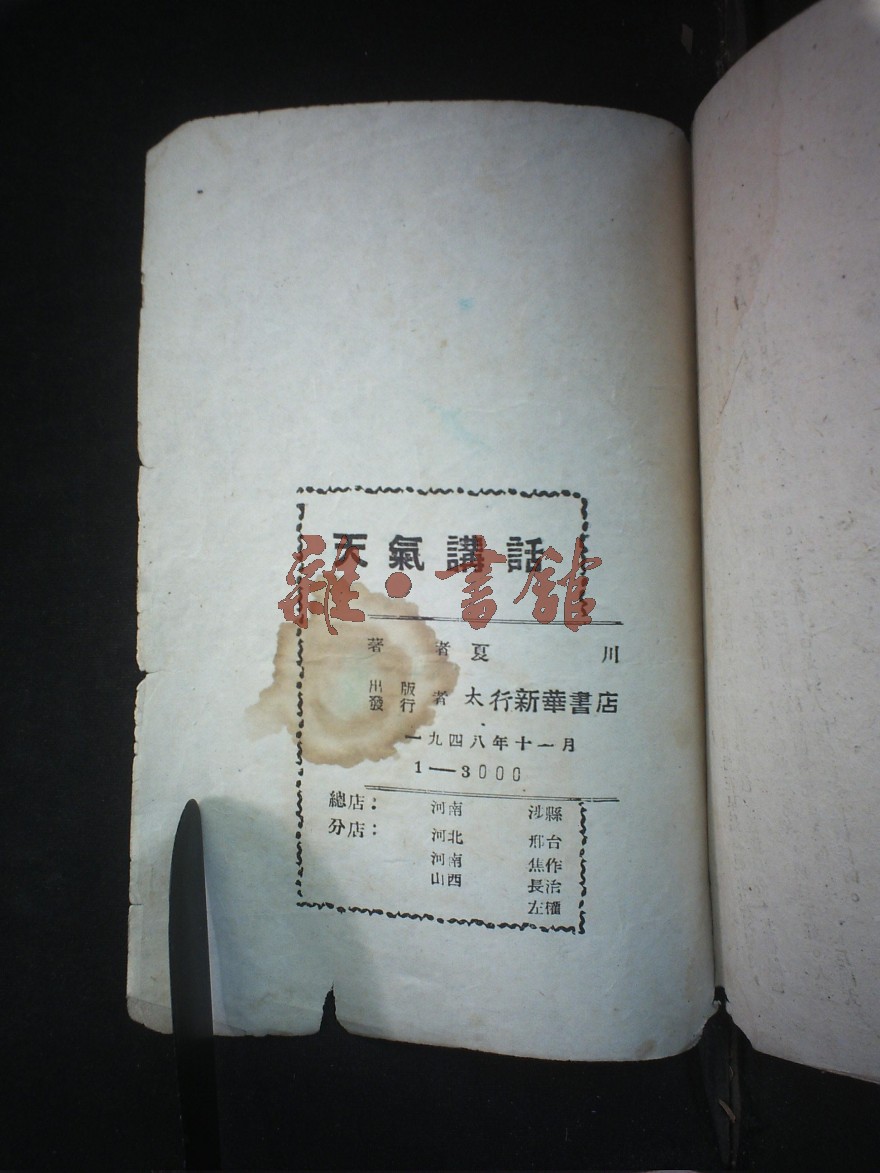 天氣講話
雜·書館
著者 夏川
出版
發行
者 太行新華書店
一九四八年十一月
1—3000
總店： 河南 涉縣
分店： 河北 邢台
河南 焦作
山西 長治
左權